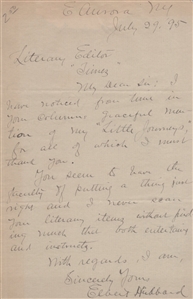 E. Aurora NY
July 29. '95
Literary Editor
"Times"
My dear Sir: I
have noticed from time in
your columns graceful men-
tion of my "Little Journeys"
for all of which I must
thank you.
You seem to have the
faculty of putting a thing just
right and I never
your literary items without find-
ing much that both entertaining
and
With regards, I am,
Sincerely Yours
Elbert Hubbard